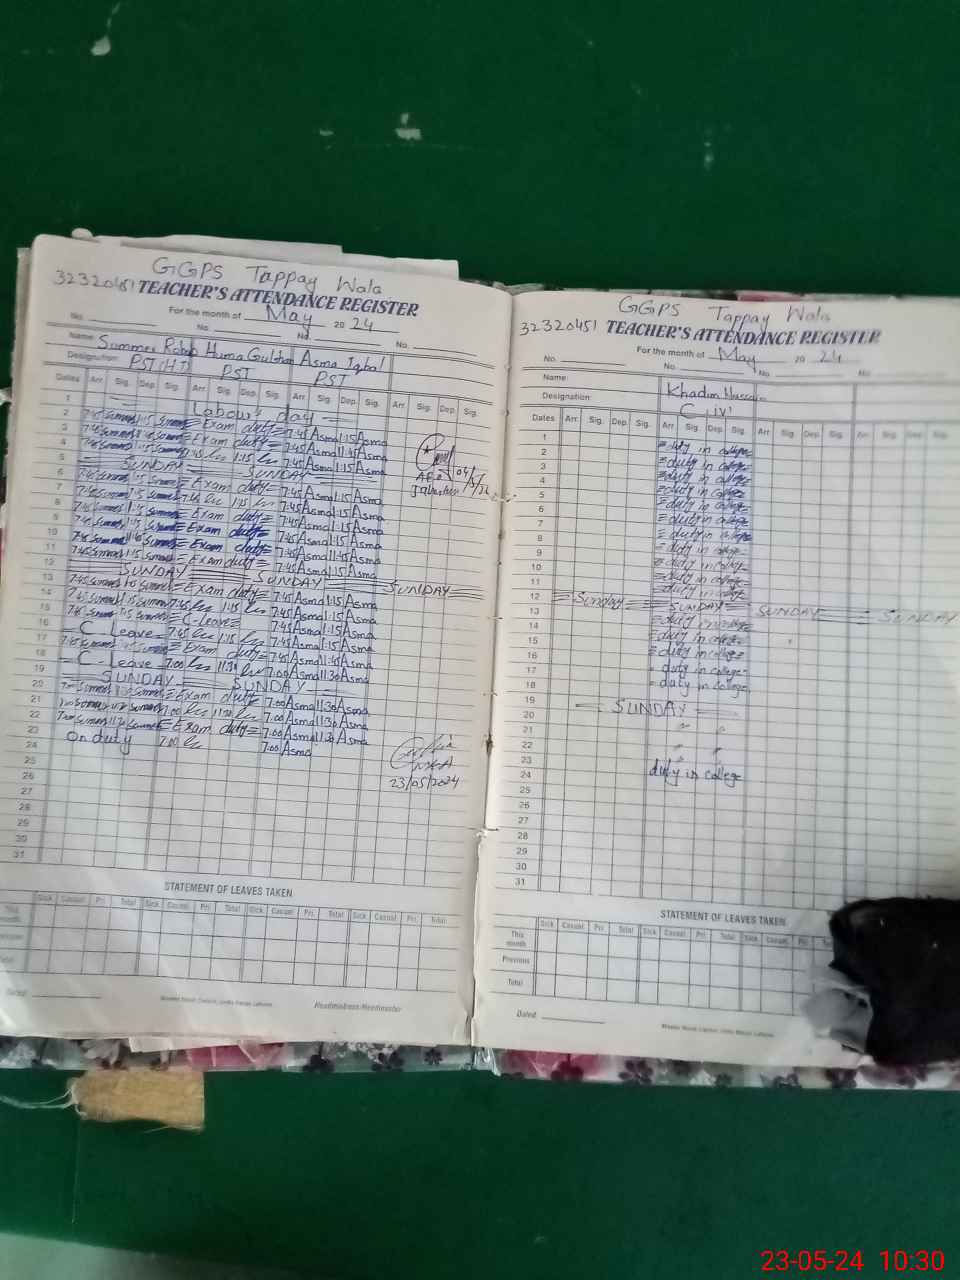 GGPS Tappay Wala
32320451 TEACHER'S ATTENDANCE REGISTER
For the month of May 2024
No. No. No. No.
Name: Summer Rabab Huma Gulshan Asma Iqbal
Designation: PST (HT) PST PST
Dates Arr. Sig. Dep. Sig. Arr. Sig. Dep. Sig. Arr. Sig. Dep. Sig. Arr. Sig. Dep. Sig.
1 Labour day
2 7:45 Summer 1:15 Summer Exam duty 7:45 Asma 1:15 Asma
3 7:45 Summer 11:45 Summer Exam duty 7:45 Asma 11:45 Asma
4 7:45 Summer 1:15 Summer 7:45 1:15 7:45 Asma 1:15 Asma
5 SUNDAY SUNDAY
6 7:45 Summer 1:15 Summer Exam duty 7:45 Asma 1:15 Asma
7 7:45 Summer 1:15 Summer 7:45 1:15 7:45 Asma 1:15 Asma
8 7:45 Summer 1:15 Summer Exam duty 7:45 Asma 1:15 Asma
9 7:45 Summer 1:15 Summer Exam duty 7:45 Asma 1:15 Asma
10 7:45 Summer 11:45 Summer Exam duty 7:45 Asma 11:45 Asma
11 7:45 Summer 1:15 Summer Exam duty 7:45 Asma 1:15 Asma
12 SUNDAY SUNDAY SUNDAY
13 7:45 Summer 1:15 Summer Exam duty 7:45 Asma 1:15 Asma
14 7:45 Summer 1:15 Summer 7:45 1:15 7:45 Asma 1:15 Asma
15 7:45 Summer 1:15 Summer C-Leave 7:45 Asma 1:15 Asma
16 C Leave 7:45 1:15 7:45 Asma 1:15 Asma
17 7:45 Summer 11:45 Summer Exam duty 7:45 Asma 11:45 Asma
18 C-Leave 7:00 11:30 7:00 Asma 11:30 Asma
19 SUNDAY SUNDAY
20 7:00 Summer 11:30 Summer Exam duty 7:00 Asma 11:30 Asma
21 7:00 Summer 11:30 Summer 7:00 11:30 7:00 Asma 11:30 Asma
22 7:00 Summer 11:30 Summer Exam duty 7:00 Asma 11:30 Asma
23 On duty 7:00 7:00 Asma
24
25
26
27
28
29
30
31
AEO
23/05/2024
STATEMENT OF LEAVES TAKEN
Sick Casual Pri. Total Sick Casual Pri. Total Sick Casual Pri. Total Sick Casual Pri. Total
This month
Previous
Total
Dated
Headmistress/Headmaster
GGPS Tappay Wala
32320451 TEACHER'S ATTENDANCE REGISTER
For the month of May 2024
No. No. No. No.
Name: Khadim Hussain
Designation: C-iv
Dates Arr. Sig. Dep. Sig. Arr. Sig. Dep. Sig. Arr. Sig. Dep. Sig. Arr. Sig. Dep. Sig.
1 duty in college
2 duty in college
3 duty in college
4 duty in college
5 duty in college
6 duty in college
7 duty in college
8 duty in college
9 duty in college
10 duty in college
11 duty in college
12 Sunday SUNDAY SUNDAY SUNDAY
13 duty in college
14 duty in college
15 duty in college
16 duty in college
17 duty in college
18
19 SUNDAY
20 " "
21
22 " "
23 " "
24 duty in college
25
26
27
28
29
30
31
STATEMENT OF LEAVES TAKEN
Sick Casual Pri. Total Sick Casual Pri. Total Sick Casual Pri. Total
This month
Previous
Total
Dated
23-05-24 10:30